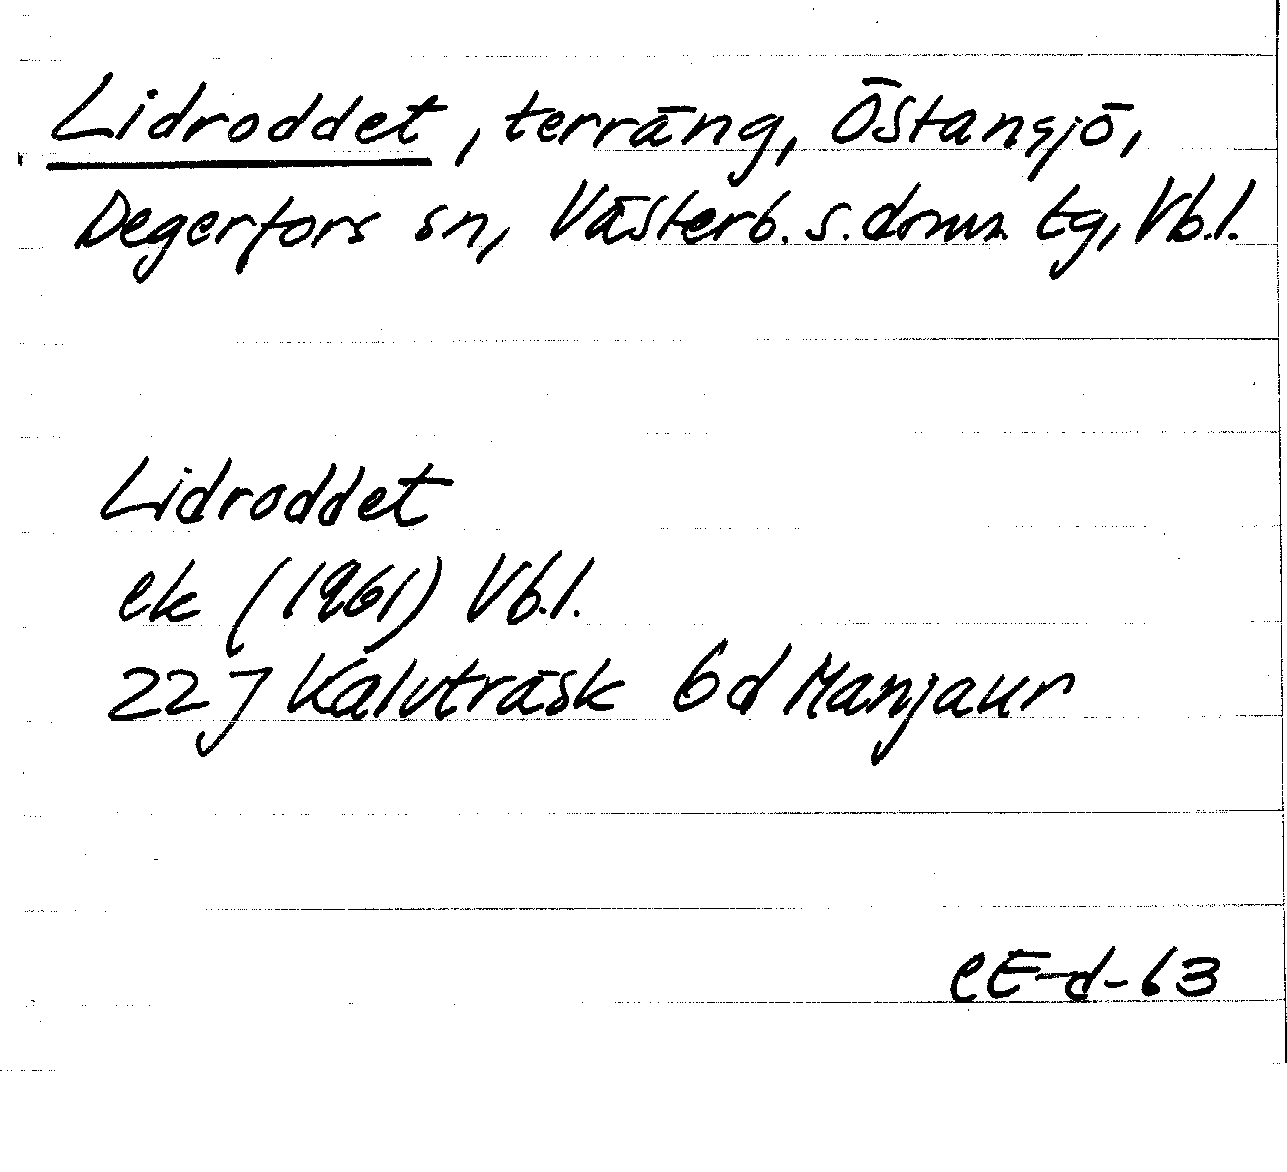 Lidroddet, terräng, Östansjö,
Degerfors sn, Västerb. s. domz. tg, Vb.l.
Lidroddet
ek (1961) Vb.l.
22 J Kalvträsk 6d Manjaur
CE-d-63